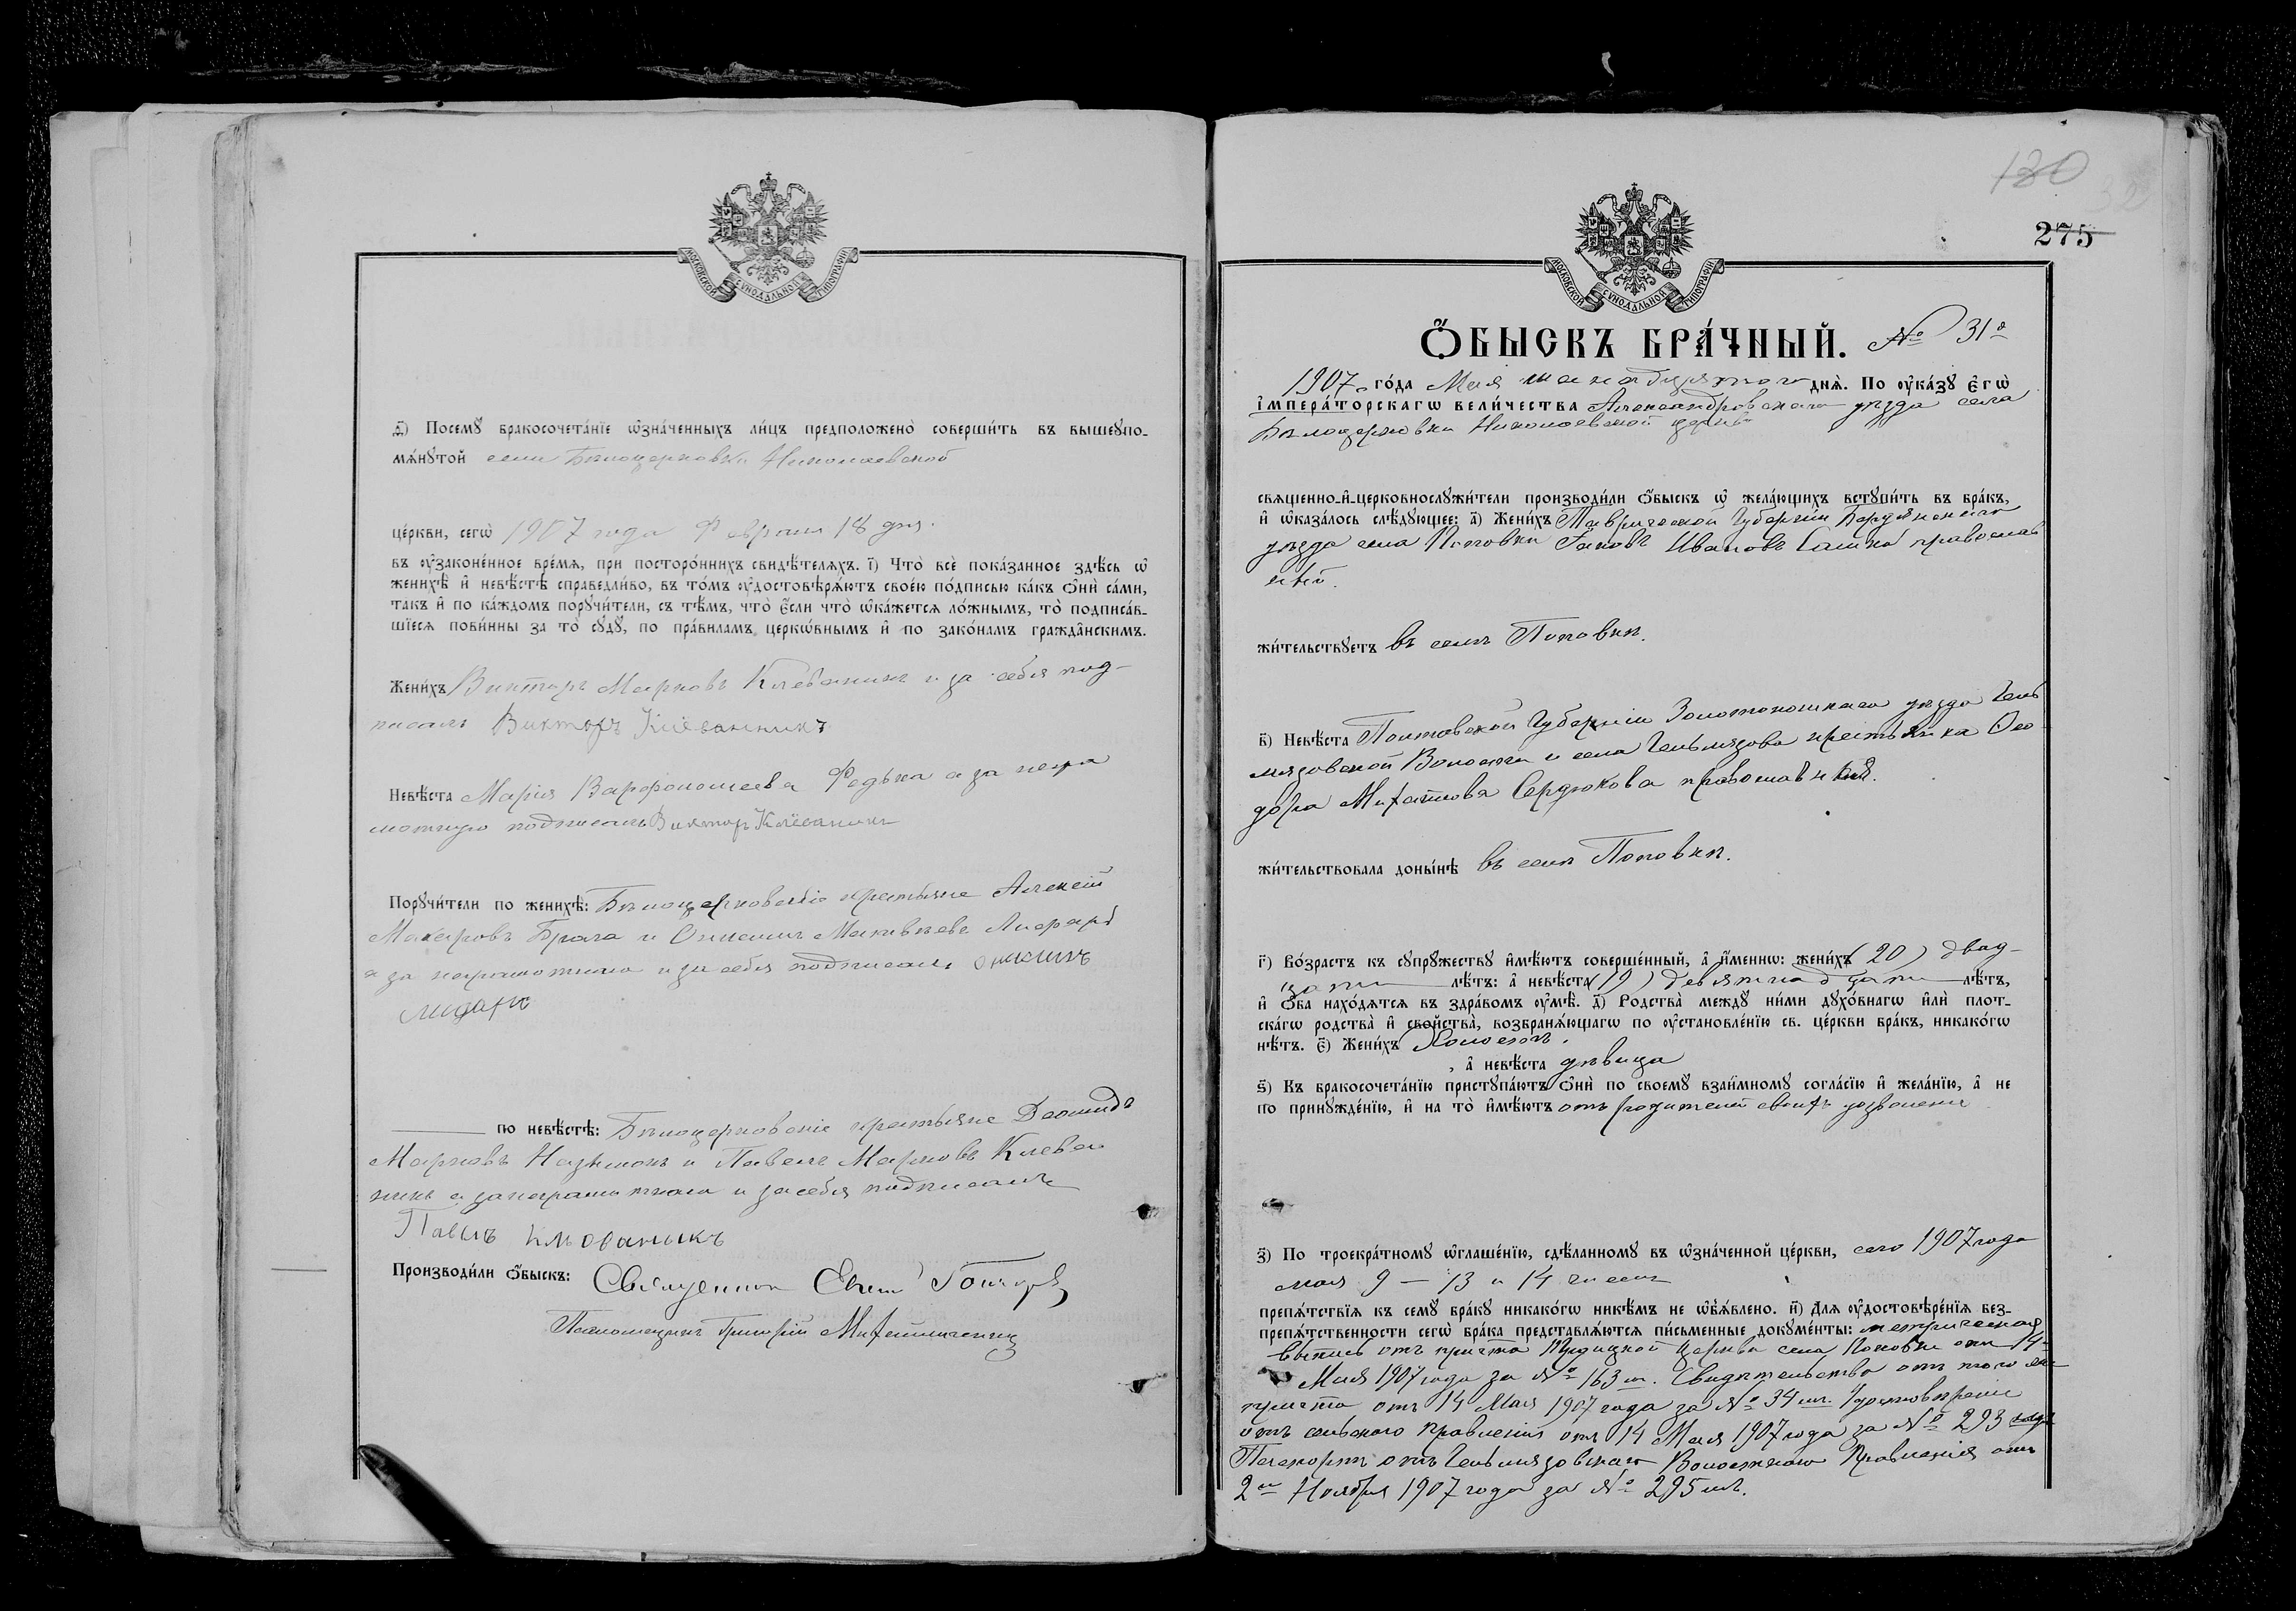 МОСКОВСКОЙ СѴНОДАЛЬНОЙ ТИПОГРАФІИ
д҃) Посемꙋ̀ бракосочета́нїе ѡ҆зна́ченныхъ ли́цъ предположено̀ соверши́ть въ вышеꙋпо-
мѧ́нꙋтой села Бѣлоцерковки Николаевской
це́ркви, сегѡ̀ 1907 года Февраля 18 дня.
въ ᲂу҆зако́не́нное вре́мѧ, при посторо́ннихъ свидѣ́телѧхъ. і҃) Что̀ всѐ пока́занное здѣ́сь ѡ҆
женихѣ̀ и҆ невѣ́стѣ справедли́во, въ то́мъ ᲂу҆достовѣрѧ́ютъ свое́ю по́дписью ка́къ ѻ҆нѝ са́ми,
та́къ и҆ по ка́ждомъ порꙋчи́тели, съ тѣ́мъ, что̀ є҆́сли что̀ ѡ҆ка́жетсѧ ло́жнымъ, то̀ подписа́в-
шїесѧ пови́нны за то̀ сꙋдꙋ̀, по пра́виламъ церкѡ́внымъ и҆ по зако́намъ гражда̑нскимъ.
Жени́хъ Викторъ Марковъ Клеваникъ и за себя под-
писалъ Викторъ Клеванникъ
Невѣ́ста Марія Варфоломеева Федька а за негра
мотную подписалъ Викторъ Клеваникъ
Порꙋчи́тели по женихѣ̀: Бѣлоцерковскіе крестьяне Алексѣй
Макаровъ Брага и Онисимъ Матвѣевъ
а за неграмотнаго и за себя подписалъ
по невѣ́стѣ: Бѣлоцерковскіе крестьяне Леонидъ
Марковъ и Павелъ Марковъ Клева
никъ а за неграмотнаго и за себя подписалъ
Павелъ
Производи́ли ѻ҆́быскъ: Священникъ
Псаломщикъ Григорій
180
32
275
МОСКОВСКОЙ СѴНОДАЛЬНОЙ ТИПОГРАФІИ
Ѻ҆́БЫСКЪ БРА́ЧНЫЙ. № 31й
1907 го́да Мая шенадцятого днѧ̀. По ᲂу҆ка́зꙋ Є҆гѡ̀
і҆мпера́торскагѡ вели́чества Александровскаго уѣзда села
Бѣлоцерковки Николаевской церкви
свѧще́нно-и҆-церковнослꙋжи́тели производи́ли ѻ҆́быскъ ѡ҆ жела́ющихъ встꙋпи́ть въ бра́къ,
и҆ ѡ҆каза́лось слѣ́дꙋющее: а҃) Жени́хъ Таврической Губерніи Бердянскаго
уѣзда села Поповки Іаковъ Ивановъ Сашко православ
ный.
жи́тельствꙋетъ въ селѣ Поповкѣ.
в҃) Невѣ́ста Полтавской Губерніи Золотоношскаго уѣзда Гель
мязовской Волости и села Гельмязова крестьянка Ѳео
дора Михайлова Сердюкова православная.
жи́тельствовала доны́нѣ въ селѣ Поповкѣ.
г҃) Во́зрастъ къ сꙋпрꙋ́жествꙋ и҆мѣ́ютъ соверше́нный, а҆ и҆́меннѡ: жени́хъ (20) двад-
цати лѣ́тъ: а҆ невѣ́ста (19) девятнадцати лѣ́тъ,
и҆ ѻ҆́ба нахо́дѧтсѧ въ здра́вомъ ᲂу҆мѣ̀. д҃) Родства̀ междꙋ̀ ни́ми дꙋхо́внагѡ и҆лѝ плот-
ска́гѡ родства̀ и҆ сво́йства̀, возбранѧ́ющагѡ по ᲂу҆становле́нїю св. це́ркви бра́къ, никако́гѡ
нѣ́тъ. є҃) Жени́хъ Холостъ,
а҆ невѣ́ста дѣвица
ѕ҃) Къ бракосочета́нїю пристꙋпа́ютъ ѻ҆нѝ по своемꙋ̀ взаи́мномꙋ согла́сїю и҆ жела́нїю, а҆ не
по принꙋжде́нїю, и҆ на то̀ и҆мѣ́ютъ отъ родителей своихъ дозволеніе
з҃) По троекра́тномꙋ ѡ҆глаше́нїю, сдѣ́ланномꙋ въ ѡ҆зна́ченной це́ркви, сего 1907 года
мая 9 – 13 и 14 чиселъ
препѧ́тствїѧ къ семꙋ̀ бра́кꙋ никако́гѡ никѣ́мъ не ѡ҆б̾ѧ́влено. и҃) Длѧ ᲂу҆достовѣре́нїѧ без-
препѧ́тственности сегѡ̀ бра́ка представлѧ́ютсѧ пи́сьменные докꙋме́нты: метрическая
выпись отъ причта Троицкой церкви села Поповки отъ 14
Мая 1907 года за № 163 м. Свидѣтельство отъ того же
причта отъ 14 Мая 1907 года за № 34 мъ. Удостовѣреніе
отъ сельского Правленія отъ 14 Мая 1907 года за № 293
Паспортъ отъ Гельмязовскаго Волостнаго Правленія отъ
2го Ноября 1907 года за № 295 мъ.